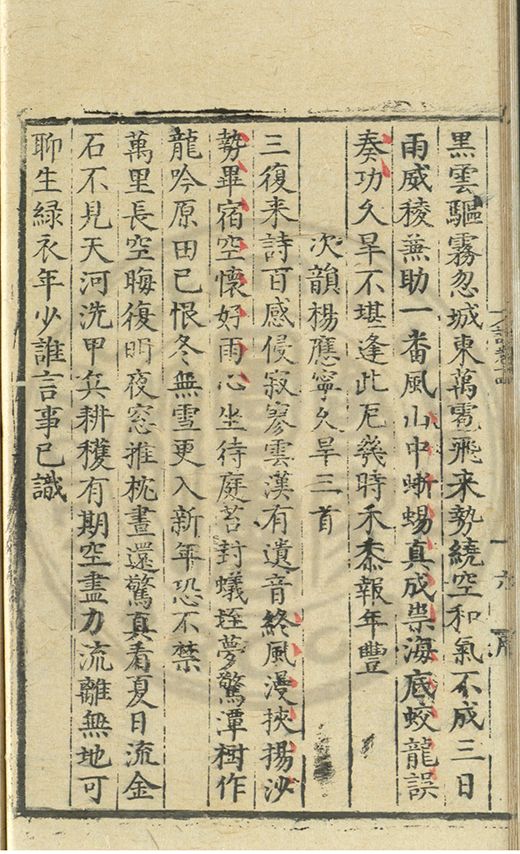 黒雲驅霧忽城東萬雹飛来勢繞空和氣不成三日
雨威稜兼助一番風山中蜥蜴真成祟海底蛟龍誤
奏功久旱不堪逢此厄幾時禾黍報年豐
次韻楊應寧久旱三首
三復来詩百感侵寂寥雲漢有遺音終風漫挾揚沙
勢畢宿空懷好雨心坐待庭苔封蟻垤夢驚潭樹作
龍吟原田已恨冬無雪更入新年恐不禁
萬里長空晦復明夜窓推枕晝還驚真看夏日流金
石不見天河洗甲兵耕穫有期空盡力流離無地可
聊生緑衣年少誰言事已識